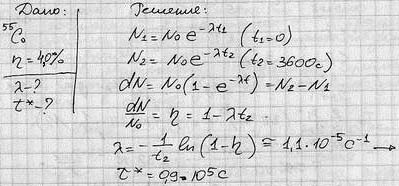 Дано:
⁵⁵Co
η = 4,0%
λ - ?
τ* - ?
Решение:
N₁ = N₀ e^(-λt₁) (t₁ = 0)
N₂ = N₀ e^(-λt₂) (t₂ = 3600 с)
dN = N₀(1 - e^(-λt)) = N₂ - N₁
dN/N₀ = η = 1 - λt₂
λ = -1/t₂ ln(1 - η) ≅ 1,1 · 10⁻⁵ с⁻¹ →
τ* = 0,9 · 10⁵ с